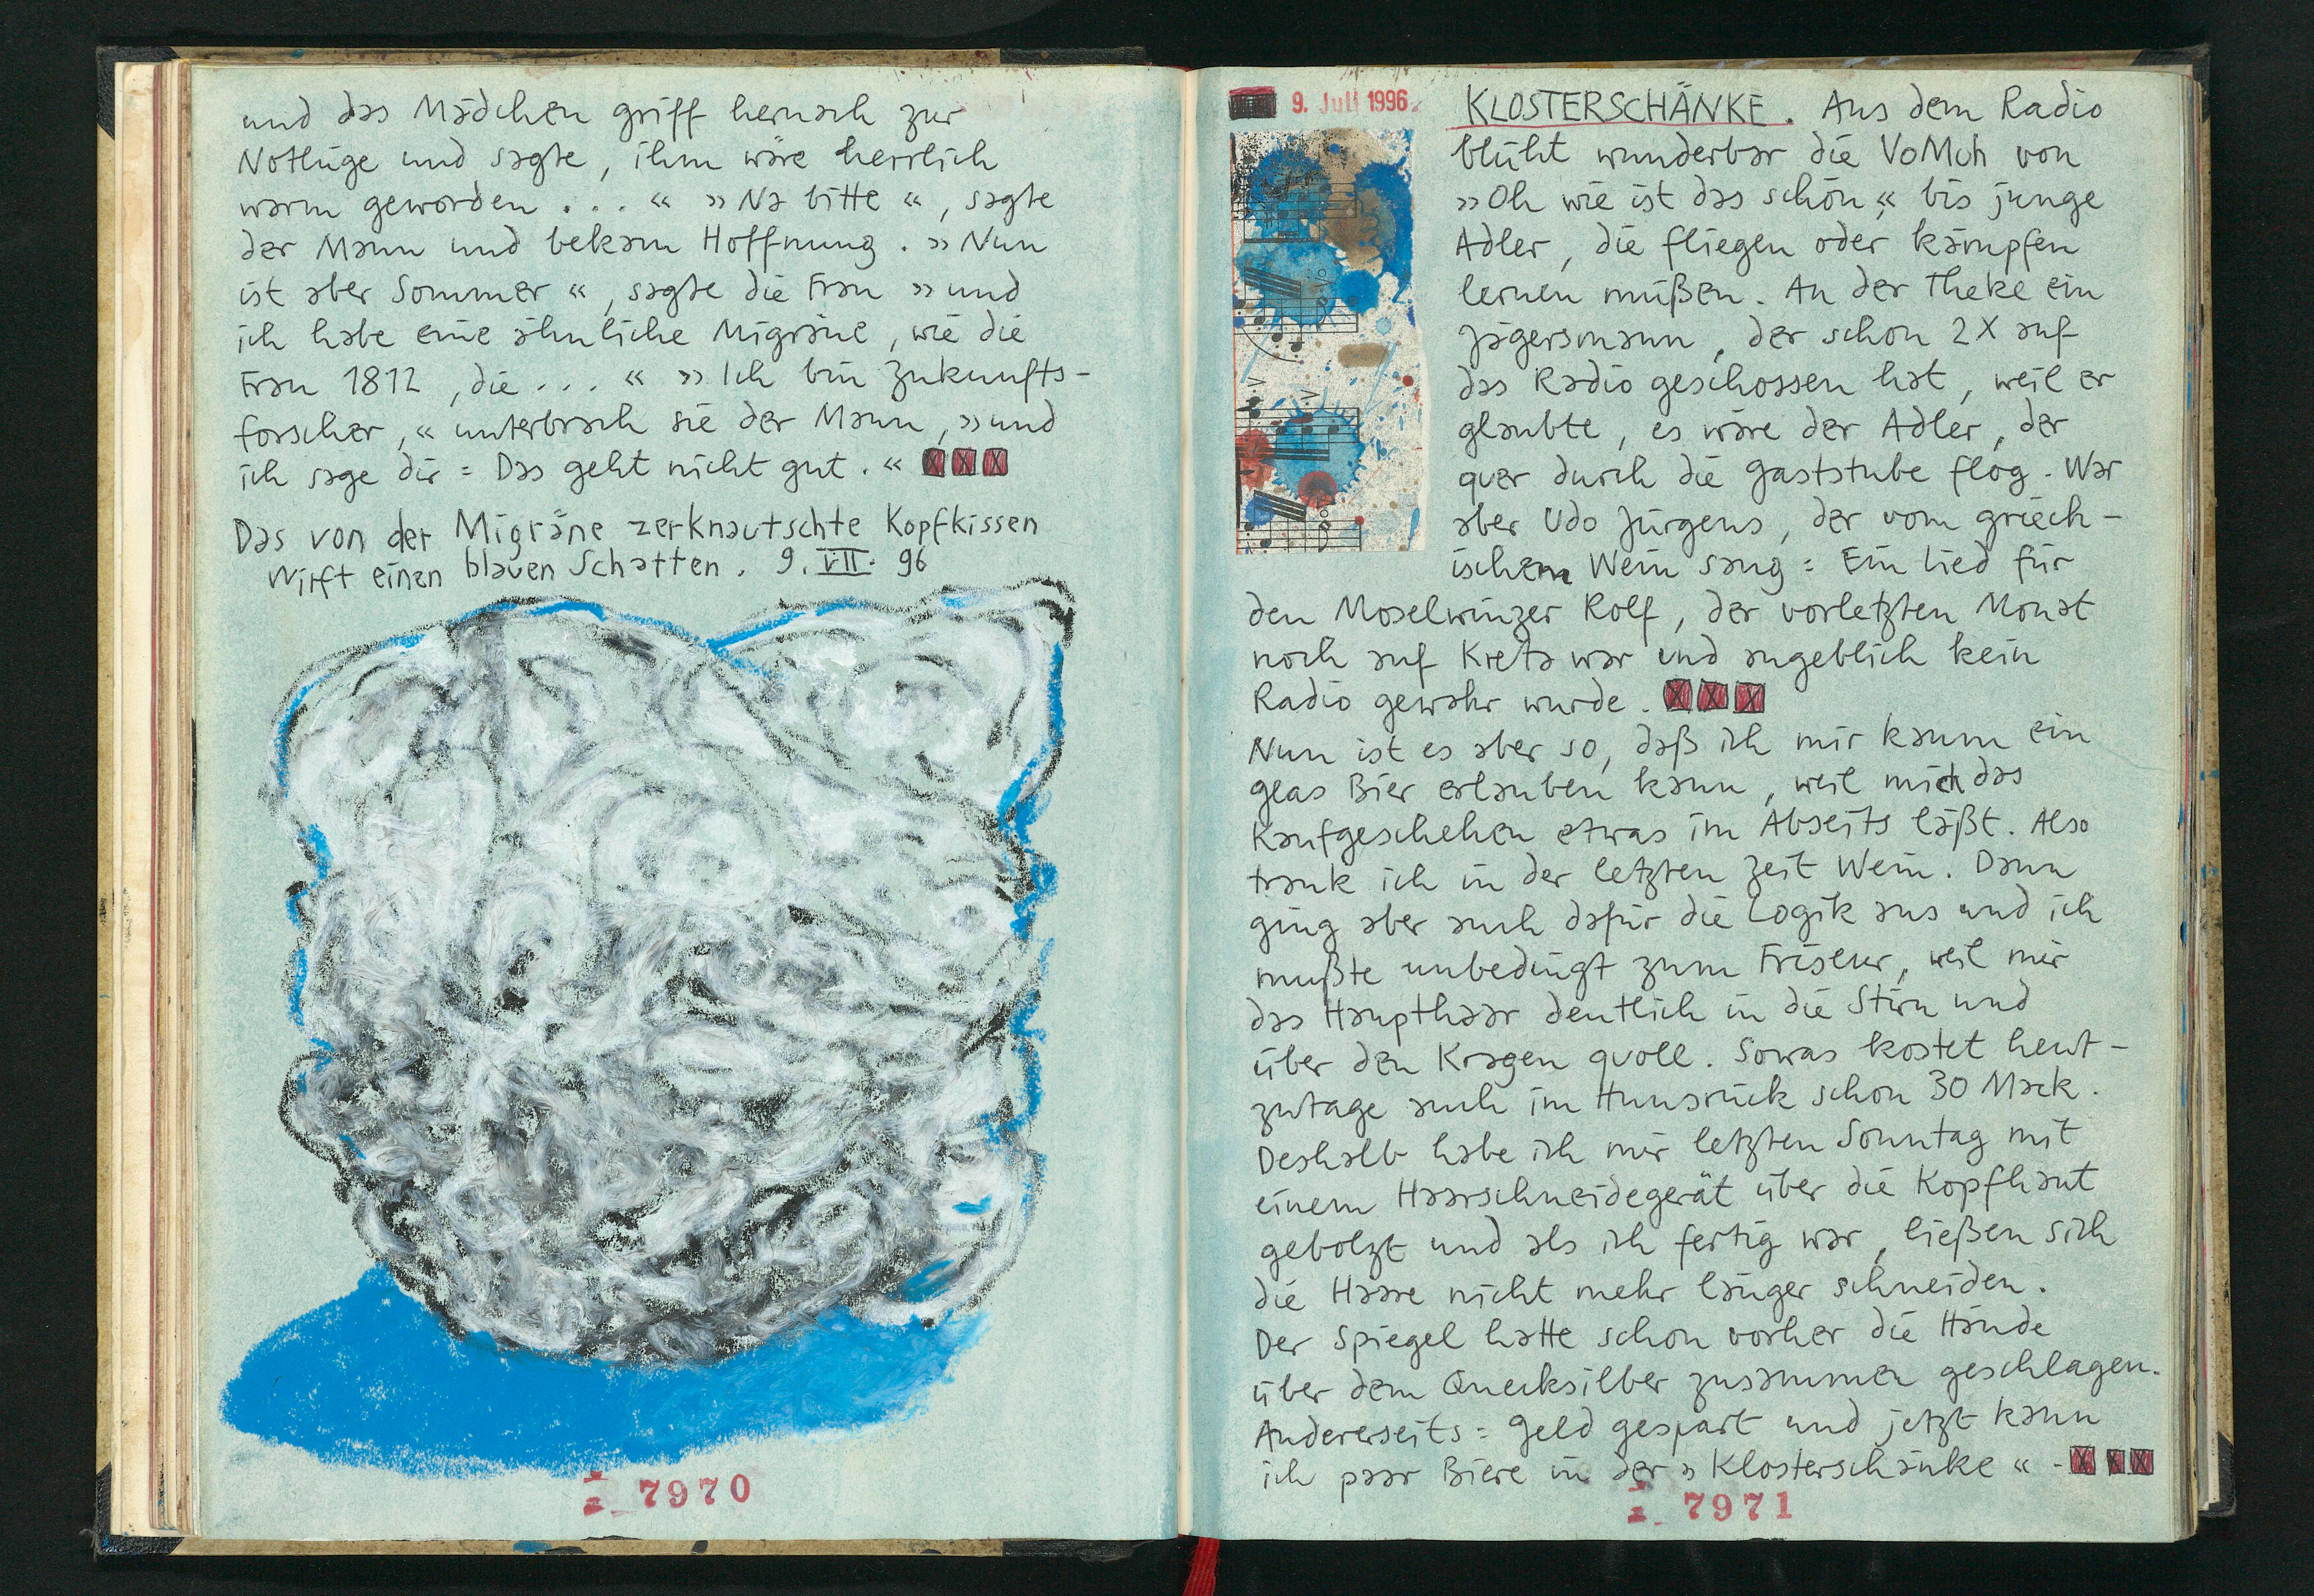 und das Mädchen griff hernach zur
Notlüge und sagte, ihm wäre herrlich
warm geworden . . . « » Na bitte «, sagte
der Mann und bekam Hoffnung. » Nun
ist aber Sommer «, sagte die Frau » und
ich habe eine ähnliche Migräne, wie die
Frau 1812, die . . . « » Ich bin Zukunfts-
forscher, « unterbrach sie der Mann, » und
ich sage dir = Das geht nicht gut. « XXX
Das von der Migräne zerknautschte Kopfkissen
wirft einen blauen Schatten. 9. VII. 96
7970
9. Juli 1996
KLOSTERSCHÄNKE. Aus dem Radio
blüht wunderbar die VoMuh von
»Oh wie ist das schön«, bis junge
Adler, die fliegen oder kämpfen
lernen müßen. An der Theke ein
Jägersmann, der schon 2 X auf
das Radio geschossen hat, weil er
glaubte, es wäre der Adler, der
quer durch die Gaststube flog. War
aber Udo Jürgens, der vom griech-
ischem Wein sang = Ein Lied für
den Moselwinzer Rolf, der vorletzten Monat
noch auf Kreta war und angeblich kein
Radio gewahr wurde. XXX
Nun ist es aber so, daß ich mir kaum ein
Glas Bier erlauben kann, weil mich das
Kaufgeschehen etwas im Abseits läßt. Also
trank ich in der letzten Zeit Wein. Dann
ging aber auch dafür die Logik aus und ich
mußte unbedingt zum Friseur, weil mir
das Haupthaar deutlich in die Stirn und
über den Kragen quoll. Sowas kostet heut-
zutage auch im Hunsrück schon 30 Mark.
Deshalb habe ich mir letzten Sonntag mit
einem Haarschneidegerät über die Kopfhaut
gebolzt und als ich fertig war, ließen sich
die Haare nicht mehr länger schneiden.
Der Spiegel hatte schon vorher die Hände
über dem Quecksilber zusammen geschlagen.
Andererseits = Geld gespart und jetzt kann
ich paar Biere in der » Klosterschänke « - XXX
7971